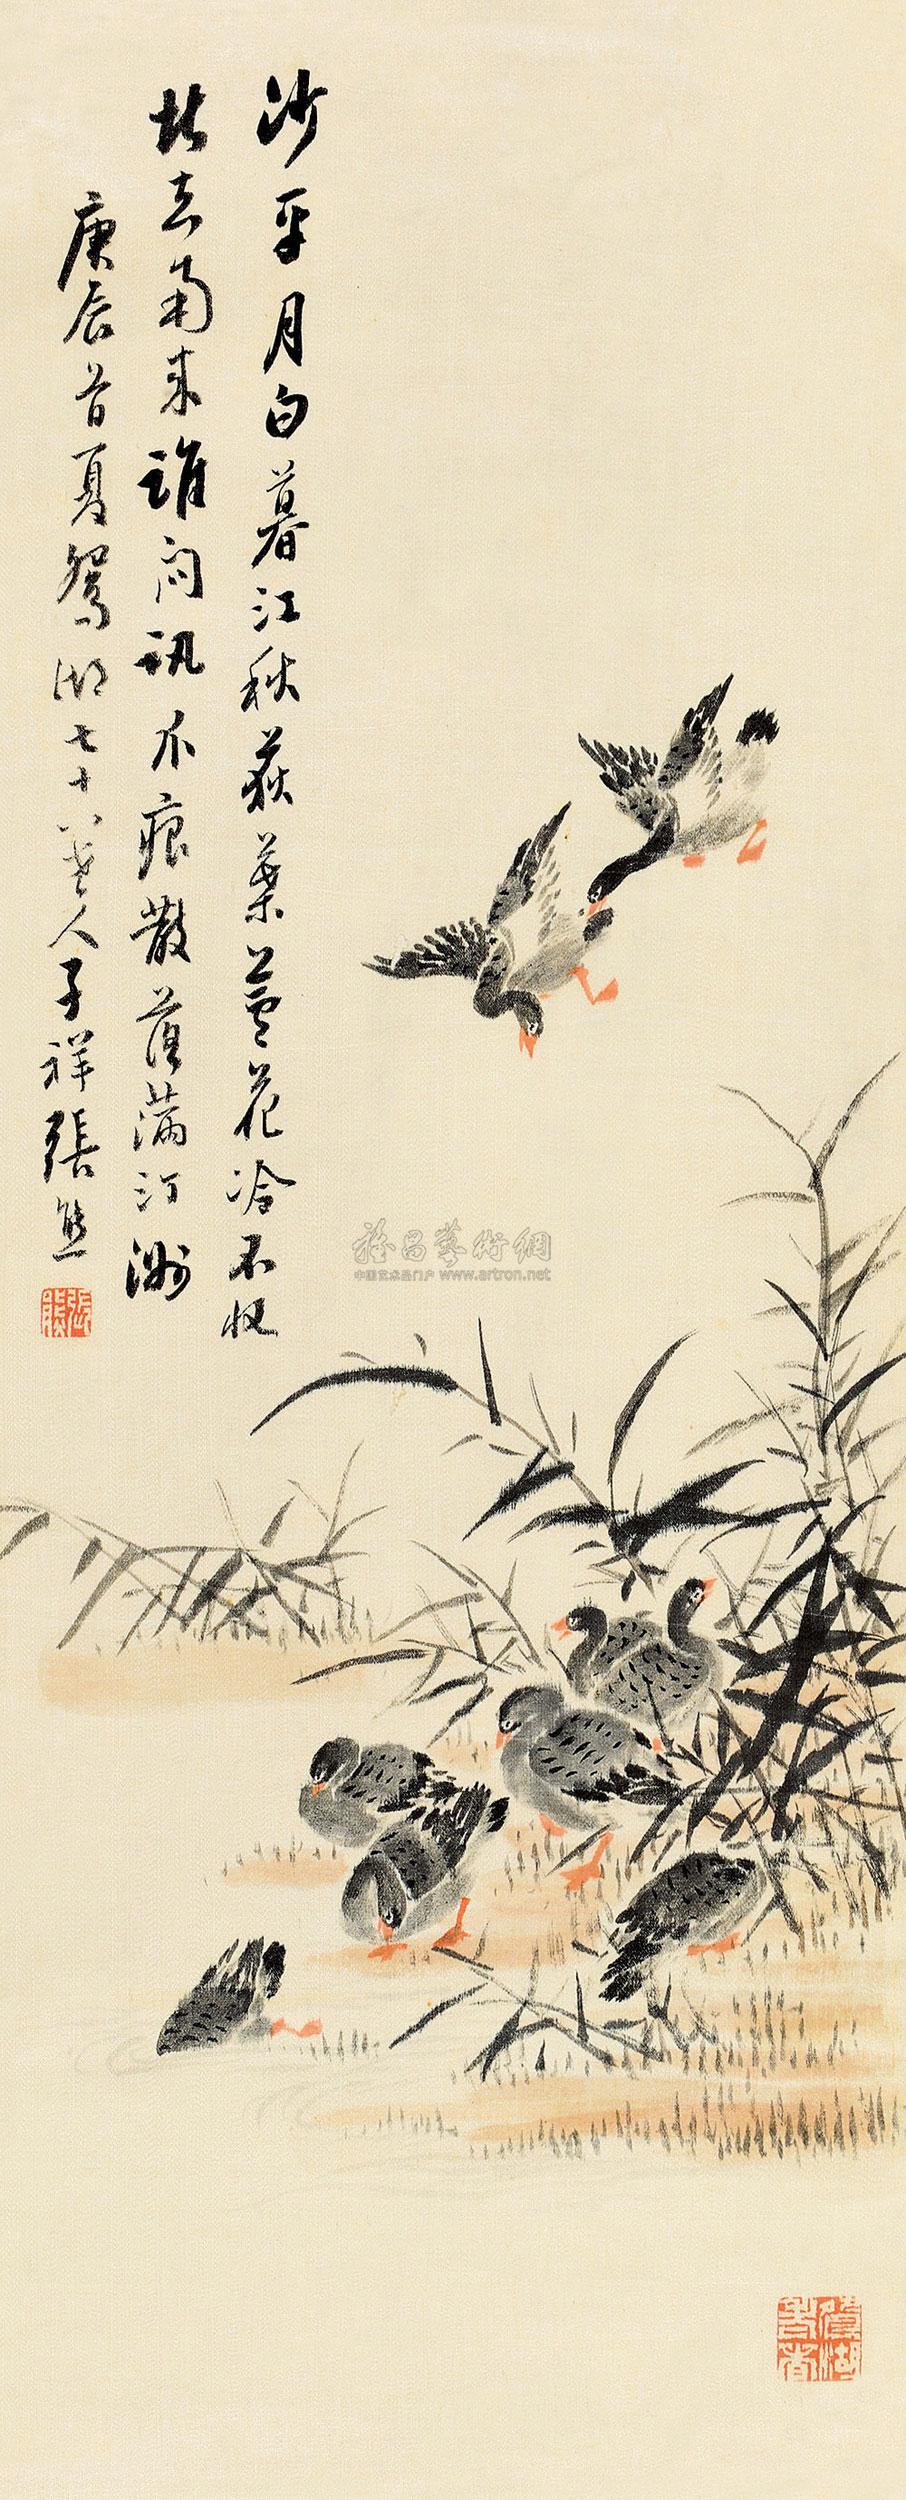 沙平月白暮江秋荻葉蘆花冷不收
北去南来誰问訊不痕散落满汀洲
庚辰首夏鴛湖七十八老人子祥張熊
張熊
雅昌藝術網
中国艺术品门户 www.artron.net